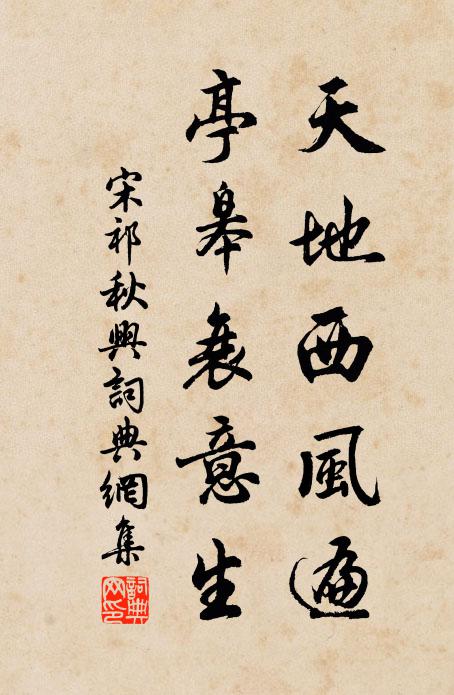 天地西風遍
亭皋衰意生
宋祁秋興詞典網集
詞典網印